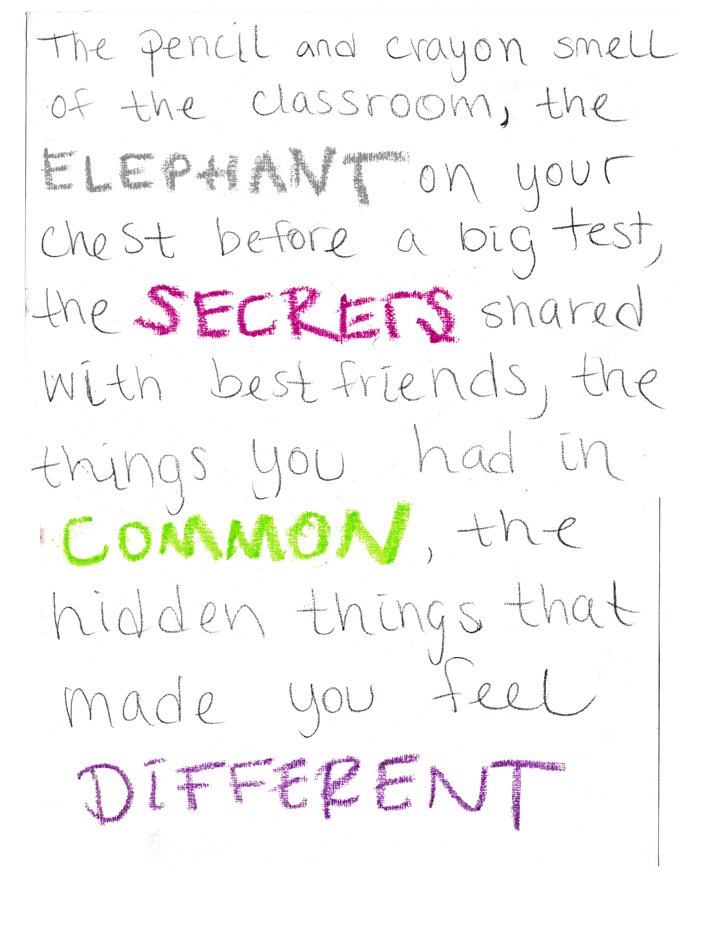 The pencil and crayon smell
of the classroom, the
ELEPHANT on your
chest before a big test,
the SECRETS shared
with best friends, the
things you had in
COMMON, the
hidden things that
made you feel
DIFFERENT